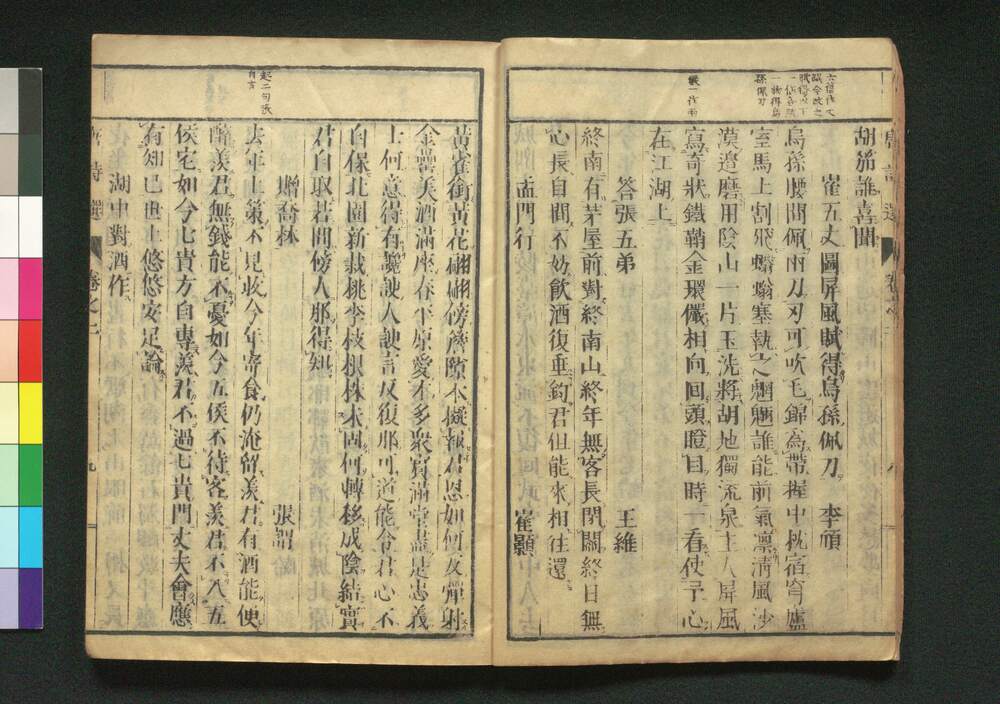 胡笳誰喜聞
崔五丈圖屏風賦得烏孫佩刀　李頎
烏孫腰間佩兩刀刃可吹毛錦為帶握中枕宿穹廬
室馬上割飛螉塞執之魍魎誰能前氣凜清風沙
漠邊磨用陰山一片玉洗將胡地獨流泉主人屏風
寫奇狀鐵鞘金環儼相向回頭瞪目時一看使予心
在江湖上
答張五弟　王維
終南有茅屋前對終南山終年無客長閉關終日無
心長自閒不妨飲酒復垂釣君但能來相往還
孟門行　崔顥
黃雀銜黃花翩翩傍簷隙本擬報君恩如何反彈射
金罍美酒滿座春平原愛才多眾賓滿堂盡是忠義
士何意得有讒諛人諛言反復那可道能令君心不
自保北園新栽桃李枝根株未固何轉移成陰結實
君自取若問傍人那得知
贈喬林　張謂
去年上策不見收今年寄食仍淹留羨君有酒能便
醉羨君無錢能不憂如今五侯不待客羨君不入五
侯宅如今七貴方自專羨君不過七貴門丈夫會應
有知己世上悠悠安足論
湖中對酒作
唐詩選　卷之二　九